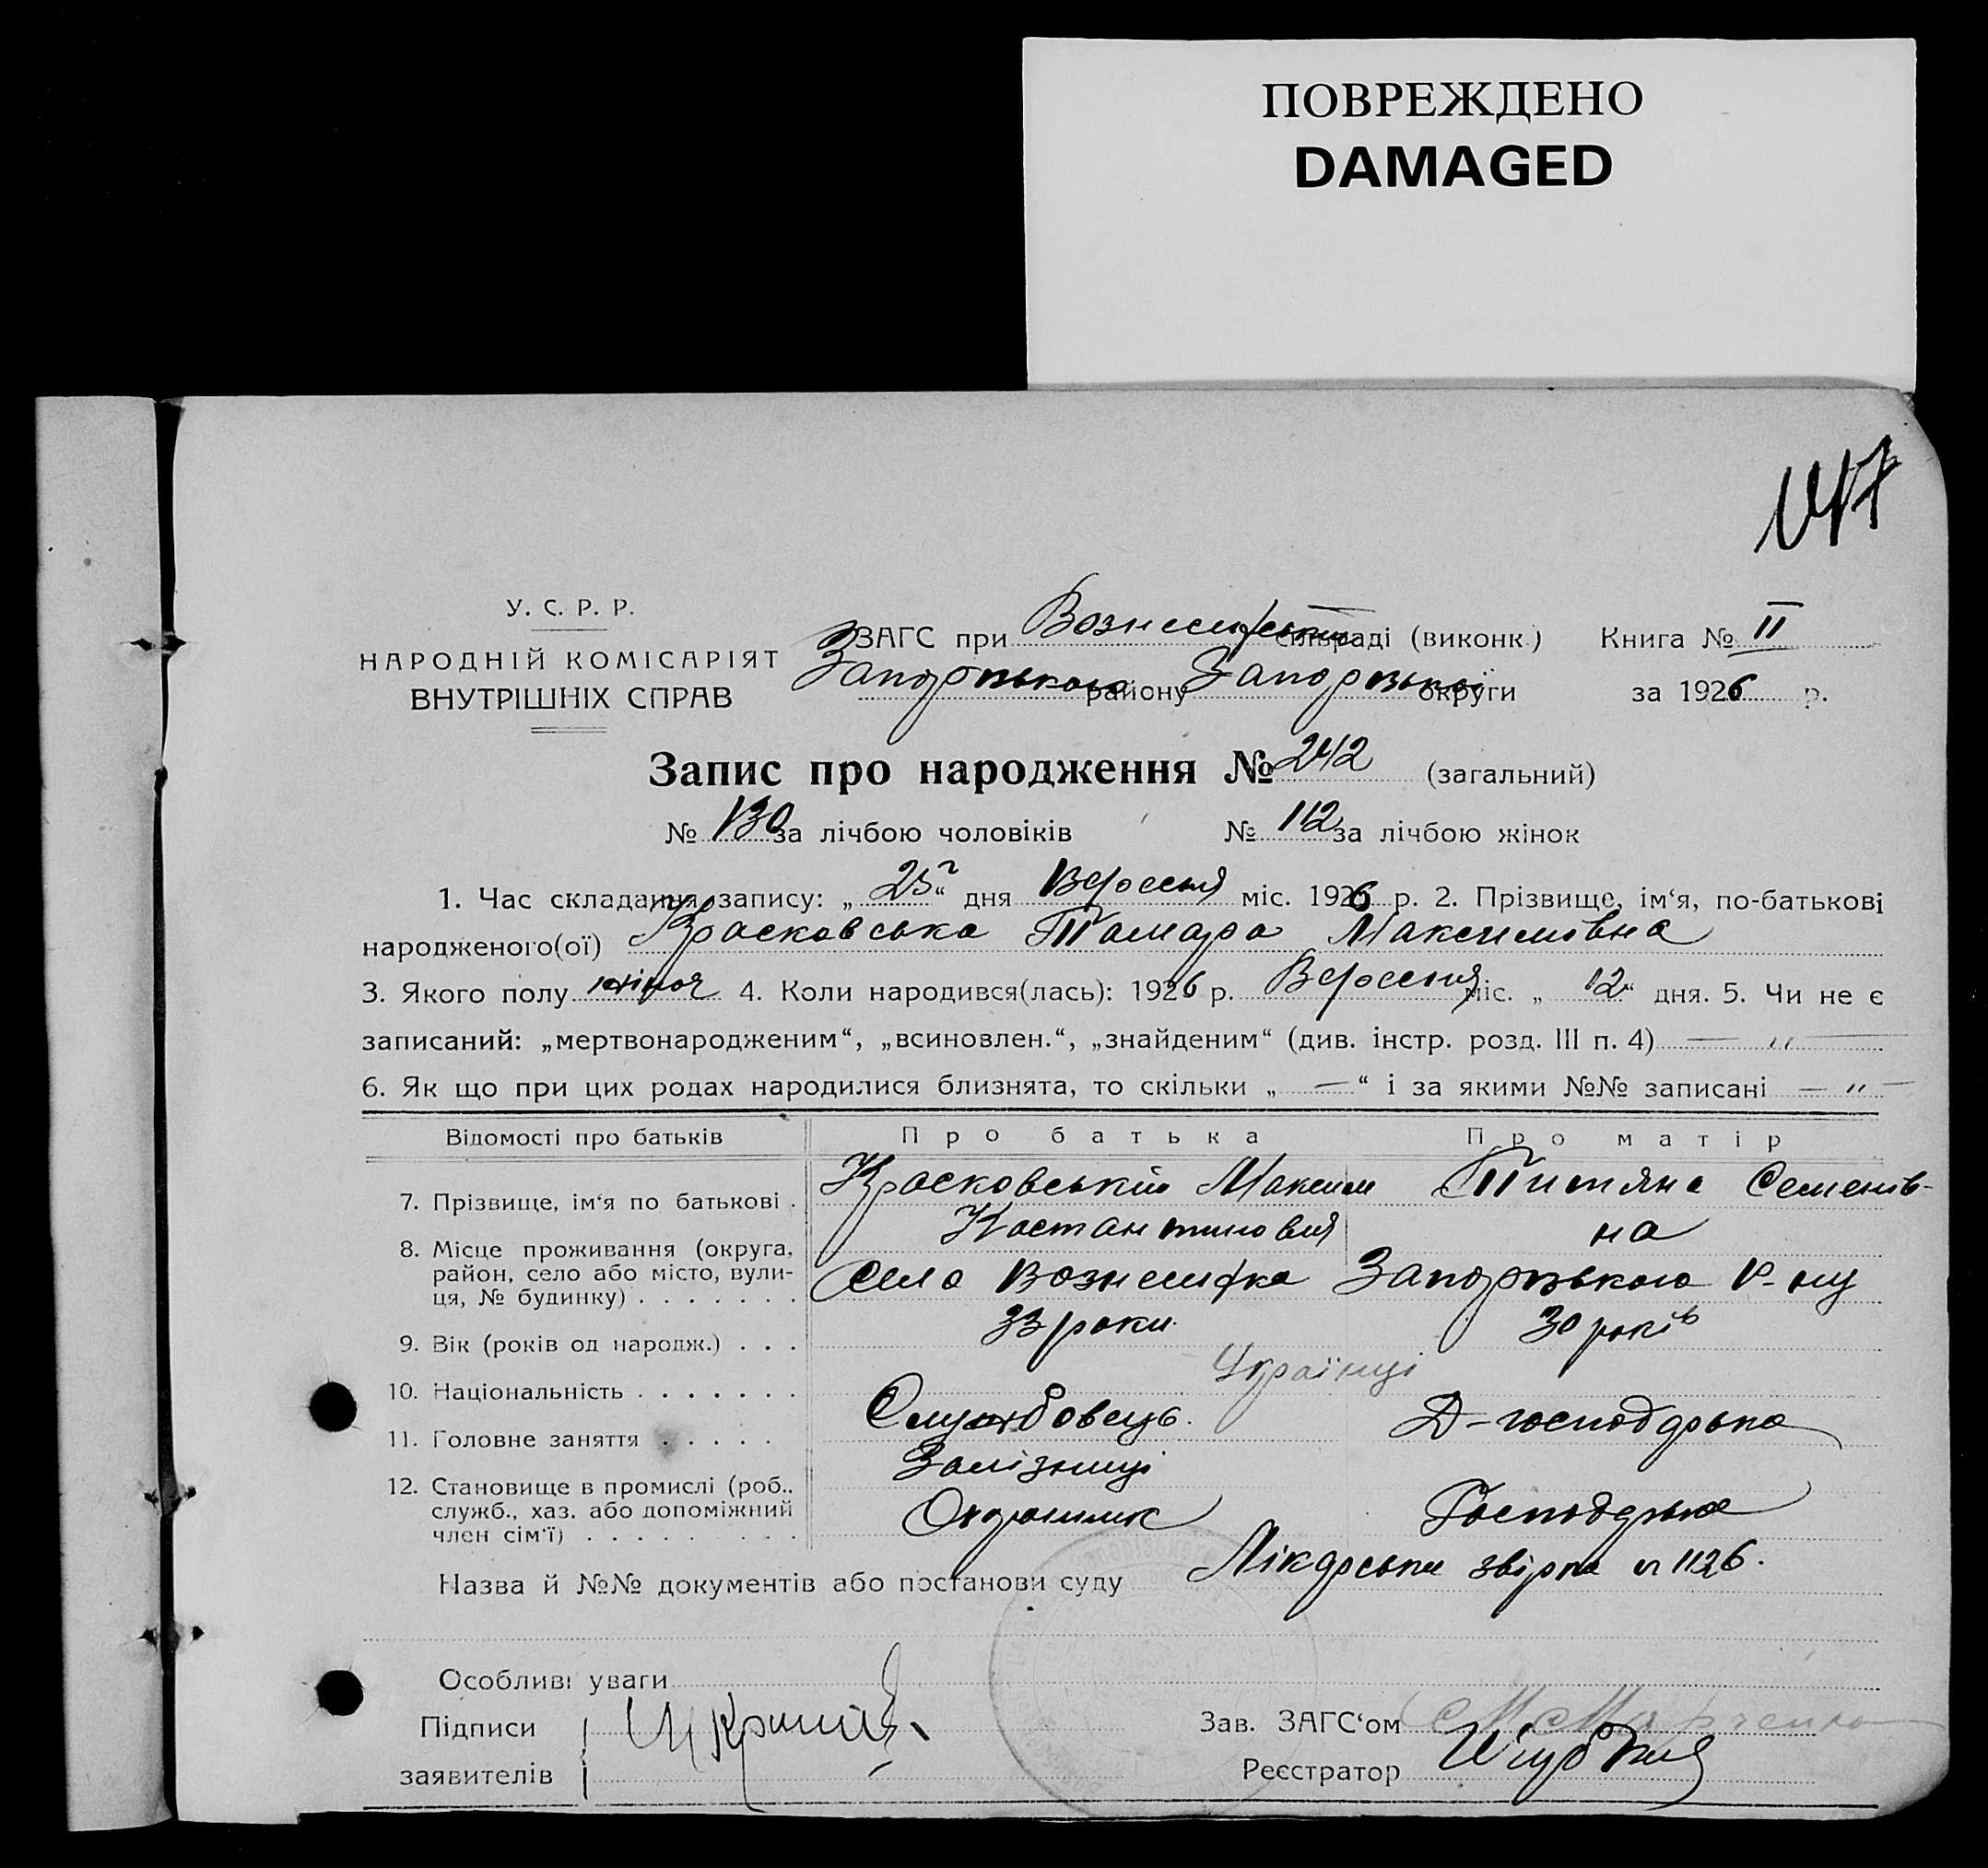 ПОВРЕЖДЕНО
DAMAGED
У. С. Р. Р.
НАРОДНІЙ КОМІСАРІЯТ
ВНУТРІШНІХ СПРАВ
ЗАГС при Вознесенській сільраді (виконк.) Книга № II
Запорізького району Запорізької округи за 1926 р.
Запис про народження № 242 (загальний)
№ 130 за лічбою чоловіків № 112 за лічбою жінок
1. Час складання запису: „ 25 “ дня Вересня міс. 1926 р. 2. Прізвище, ім‘я, по-батькові
народженого(ої) Красковська Тамара Максимівна
3. Якого полу жіноч 4. Коли народився(лась): 1926 р. Вересня міс. „ 12 “ дня. 5. Чи не є
записаний: „мертвонародженим“, „всиновлен.“, „знайденим“ (див. інстр. розд. III п. 4) — „ —
6. Як що при цих родах народилися близнята, то скільки „ — “ і за якими №№ записані — „ —
Відомості про батьків Про батька Про матір
7. Прізвище, ім‘я по батькові . Красковський Максим Костантинович Титяна Семенівна
8. Місце проживання (округа, район, село або місто, вулиця, № будинку) . . . . . . . Село Вознесенка Запорізького р-ну
9. Вік (років од народж.) . . . 33 роки 30 років
10. Національність . . . . . . . Українці
11. Головне заняття . . . . . Службовець Залізниці Д-господарька
12. Становище в промислі (роб., служб., хаз. або допоміжний член сім‘ї) . . . . . . . . . Охранник Господарька
Назва й №№ документів або постанови суду Лікарська звірка № 1126.
Особливі уваги
Підписи
заявителів
Зав. ЗАГС‘ом
Реєстратор